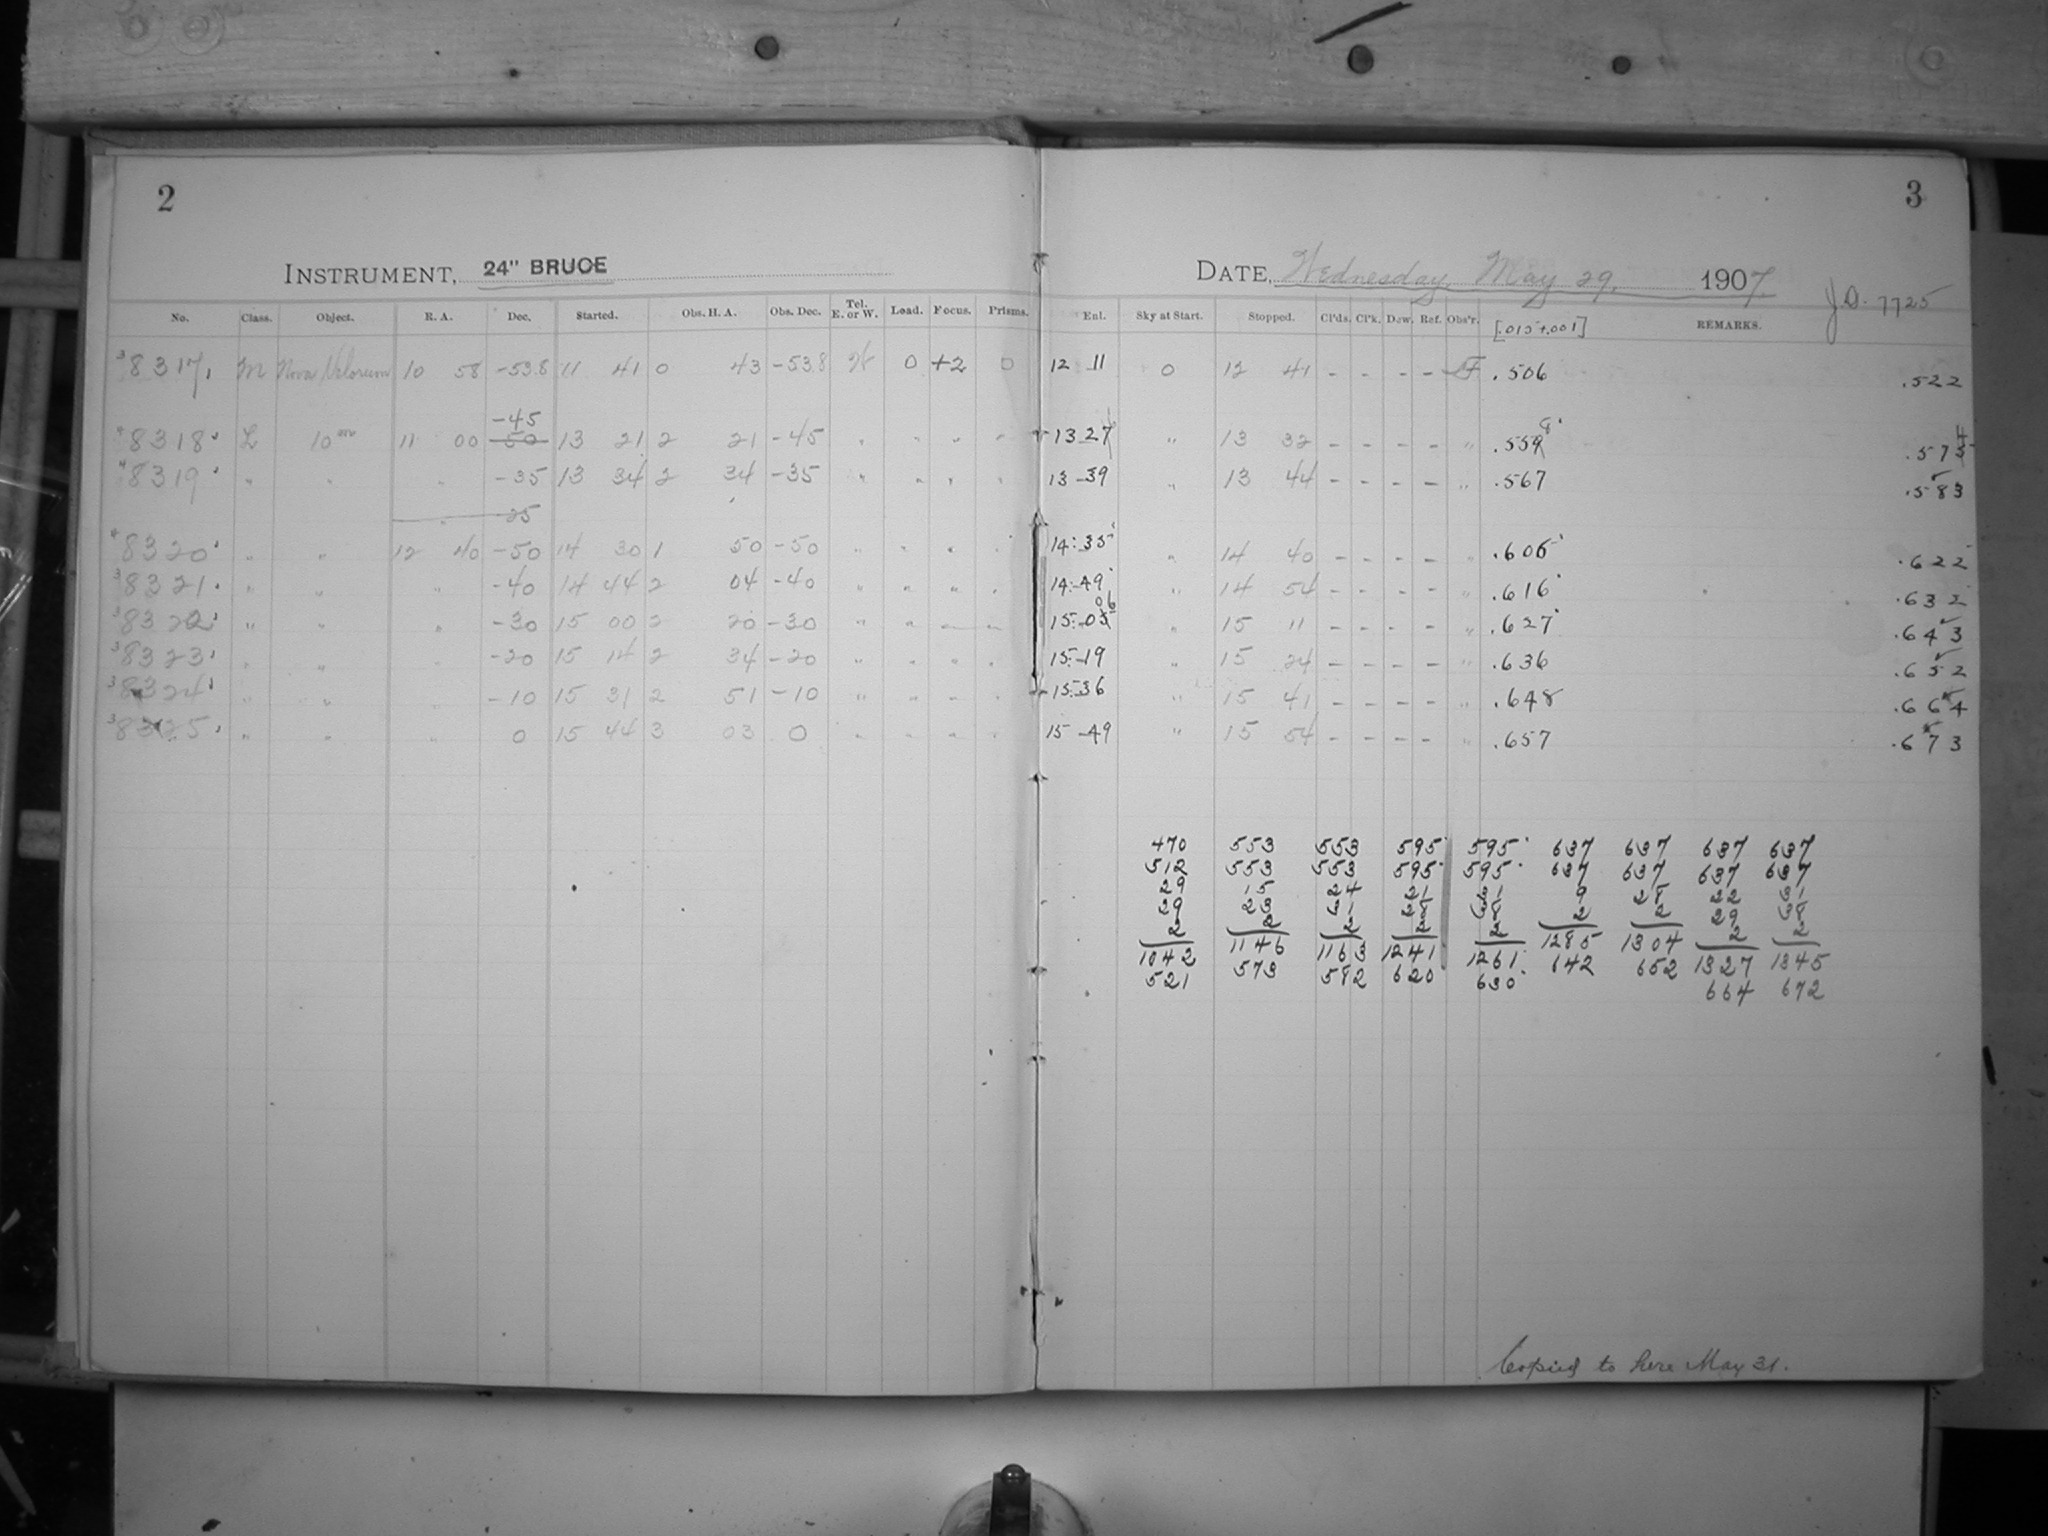 2
3
INSTRUMENT, 24" BRUCE
DATE, Wednesday, May 29, 1907.
J.D. 7725
No. Class. Object. R. A. Dec. Started. Obs. H. A. Obs. Dec. Tel. E. or W. Lead. Focus. Prisms. Enl. Sky at Start. Stopped. Cl'ds. Cl'k. Dew. Ref. Obs'r. [.015+.001] REMARKS.
38317, M Nova Velorum 10 58 -53.8 11 41 0 43 -53.8 W 0 +2 0 12 11 0 12 41 - - - - F .506 .522
-45
48318 L 10m 11 00 -50 13 21 2 21 -45 " " " " 13 27 " 13 32 - - - - " .559 8 .573 4
48319 " " " -35 13 34 2 34 -35 " " " " 13-39 " 13 44 - - - - " .567 .583
" -25
48320 " " 12 40 -50 14 30 1 50 -50 " " " " 14:35 " 14 40 - - - - " .606 .622
38321 " " " -40 14 44 2 04 -40 " " " " 14-49 " 14 54 - - - - " .616 .632
06
38322 " " " -30 15 00 2 20 -30 " " " " 15:05 " 15 11 - - - - " .627 .643
38323 " " " -20 15 14 2 34 -20 " " " " 15-19 " 15 24 - - - - " .636 .652
38324 " " " -10 15 31 2 51 -10 " " " " 15:36 " 15 41 - - - - " .648 .664
38325 " " " 0 15 44 3 03 0 " " " " 15-49 " 15 54 - - - - " .657 .673
470 553 553 595 595 637 637 637 637
512 553 553 595 595 637 637 637 637
29 15 24 21 31 9 28 22 31
29 23 31 28 38 2 2 29 38
2 2 2 2 2 1285 1304 2 2
1042 1146 1163 1241 1261 642 652 1327 1345
521 573 582 620 630 664 672
Copied to here May 31.